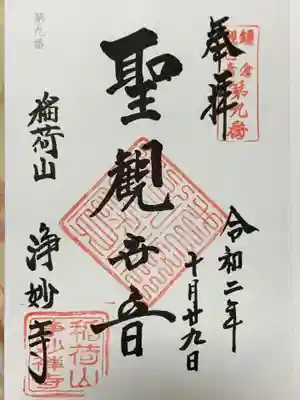 奉拝
鎌倉
観音第九番
令和二年
十月廿九日
聖観世音
第九番
稲荷山
浄妙寺
稲荷山
浄妙禅寺